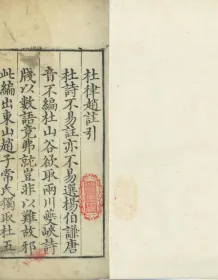 杜律趙註引
杜詩不易註亦不易選楊伯謙唐
音不編杜山谷欲取兩川夔峽詩
牋以數語竟弗就豈非以難故邪
此編出東山趙子常氏獨取杜五